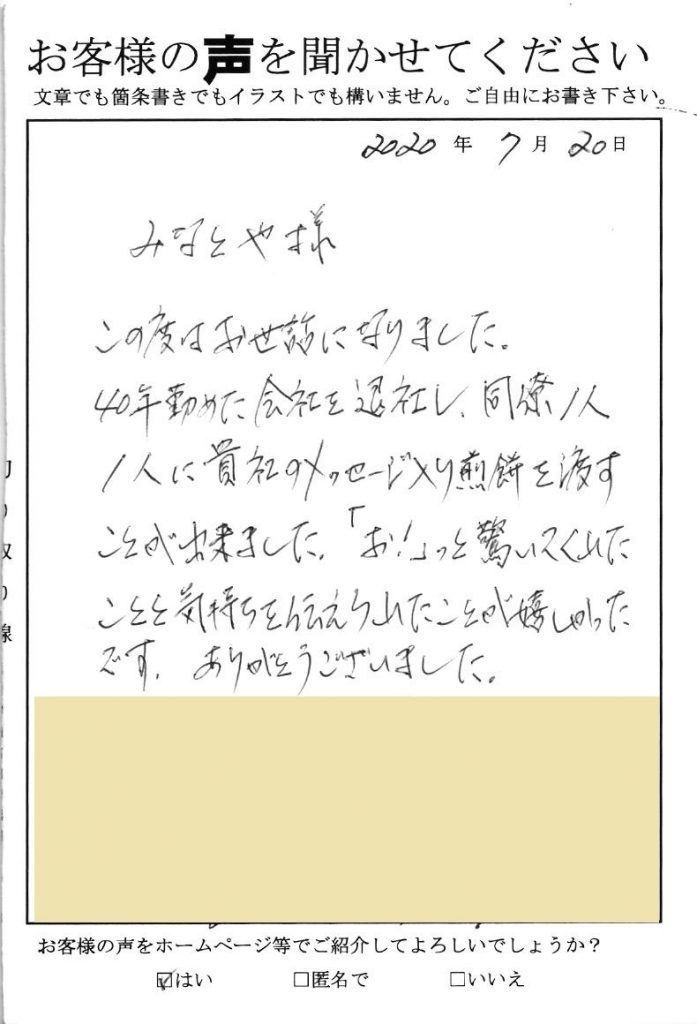 お客様の声を聞かせてください
文章でも箇条書きでもイラストでも構いません。ご自由にお書き下さい。
2020 年 7 月 20 日
みなとや様
この度はお世話になりました。
40年勤めた会社を退社し、同僚1人
1人に貴社のメッセージ入り煎餅を渡す
ことが出来ました。「お!」っと驚いてくれた
ことと気持ちを伝えられたことが嬉しかった
です。ありがとうございました。
お客様の声をホームページ等でご紹介してよろしいでしょうか？
☑はい □匿名で □いいえ